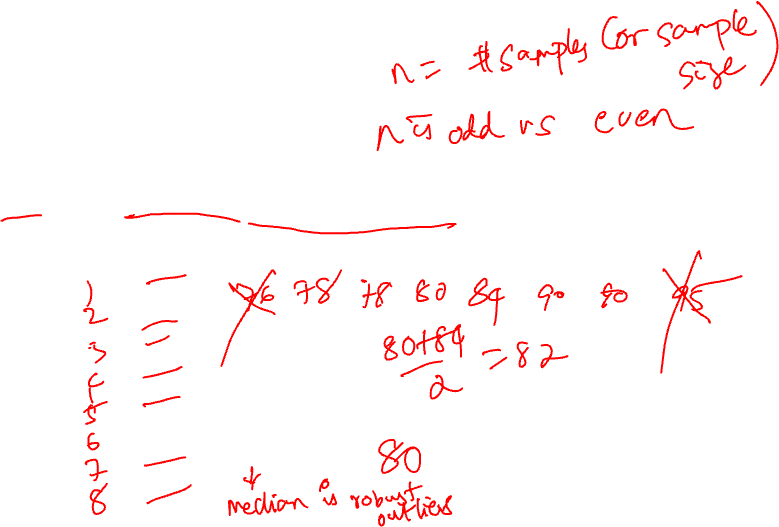 n = # samples (or sample size)
n is odd vs even
1
2
3
4
5
6
7
8
76 78 78 80 84 90 90 95
80+84
2
= 82
80
median is robust
outliers